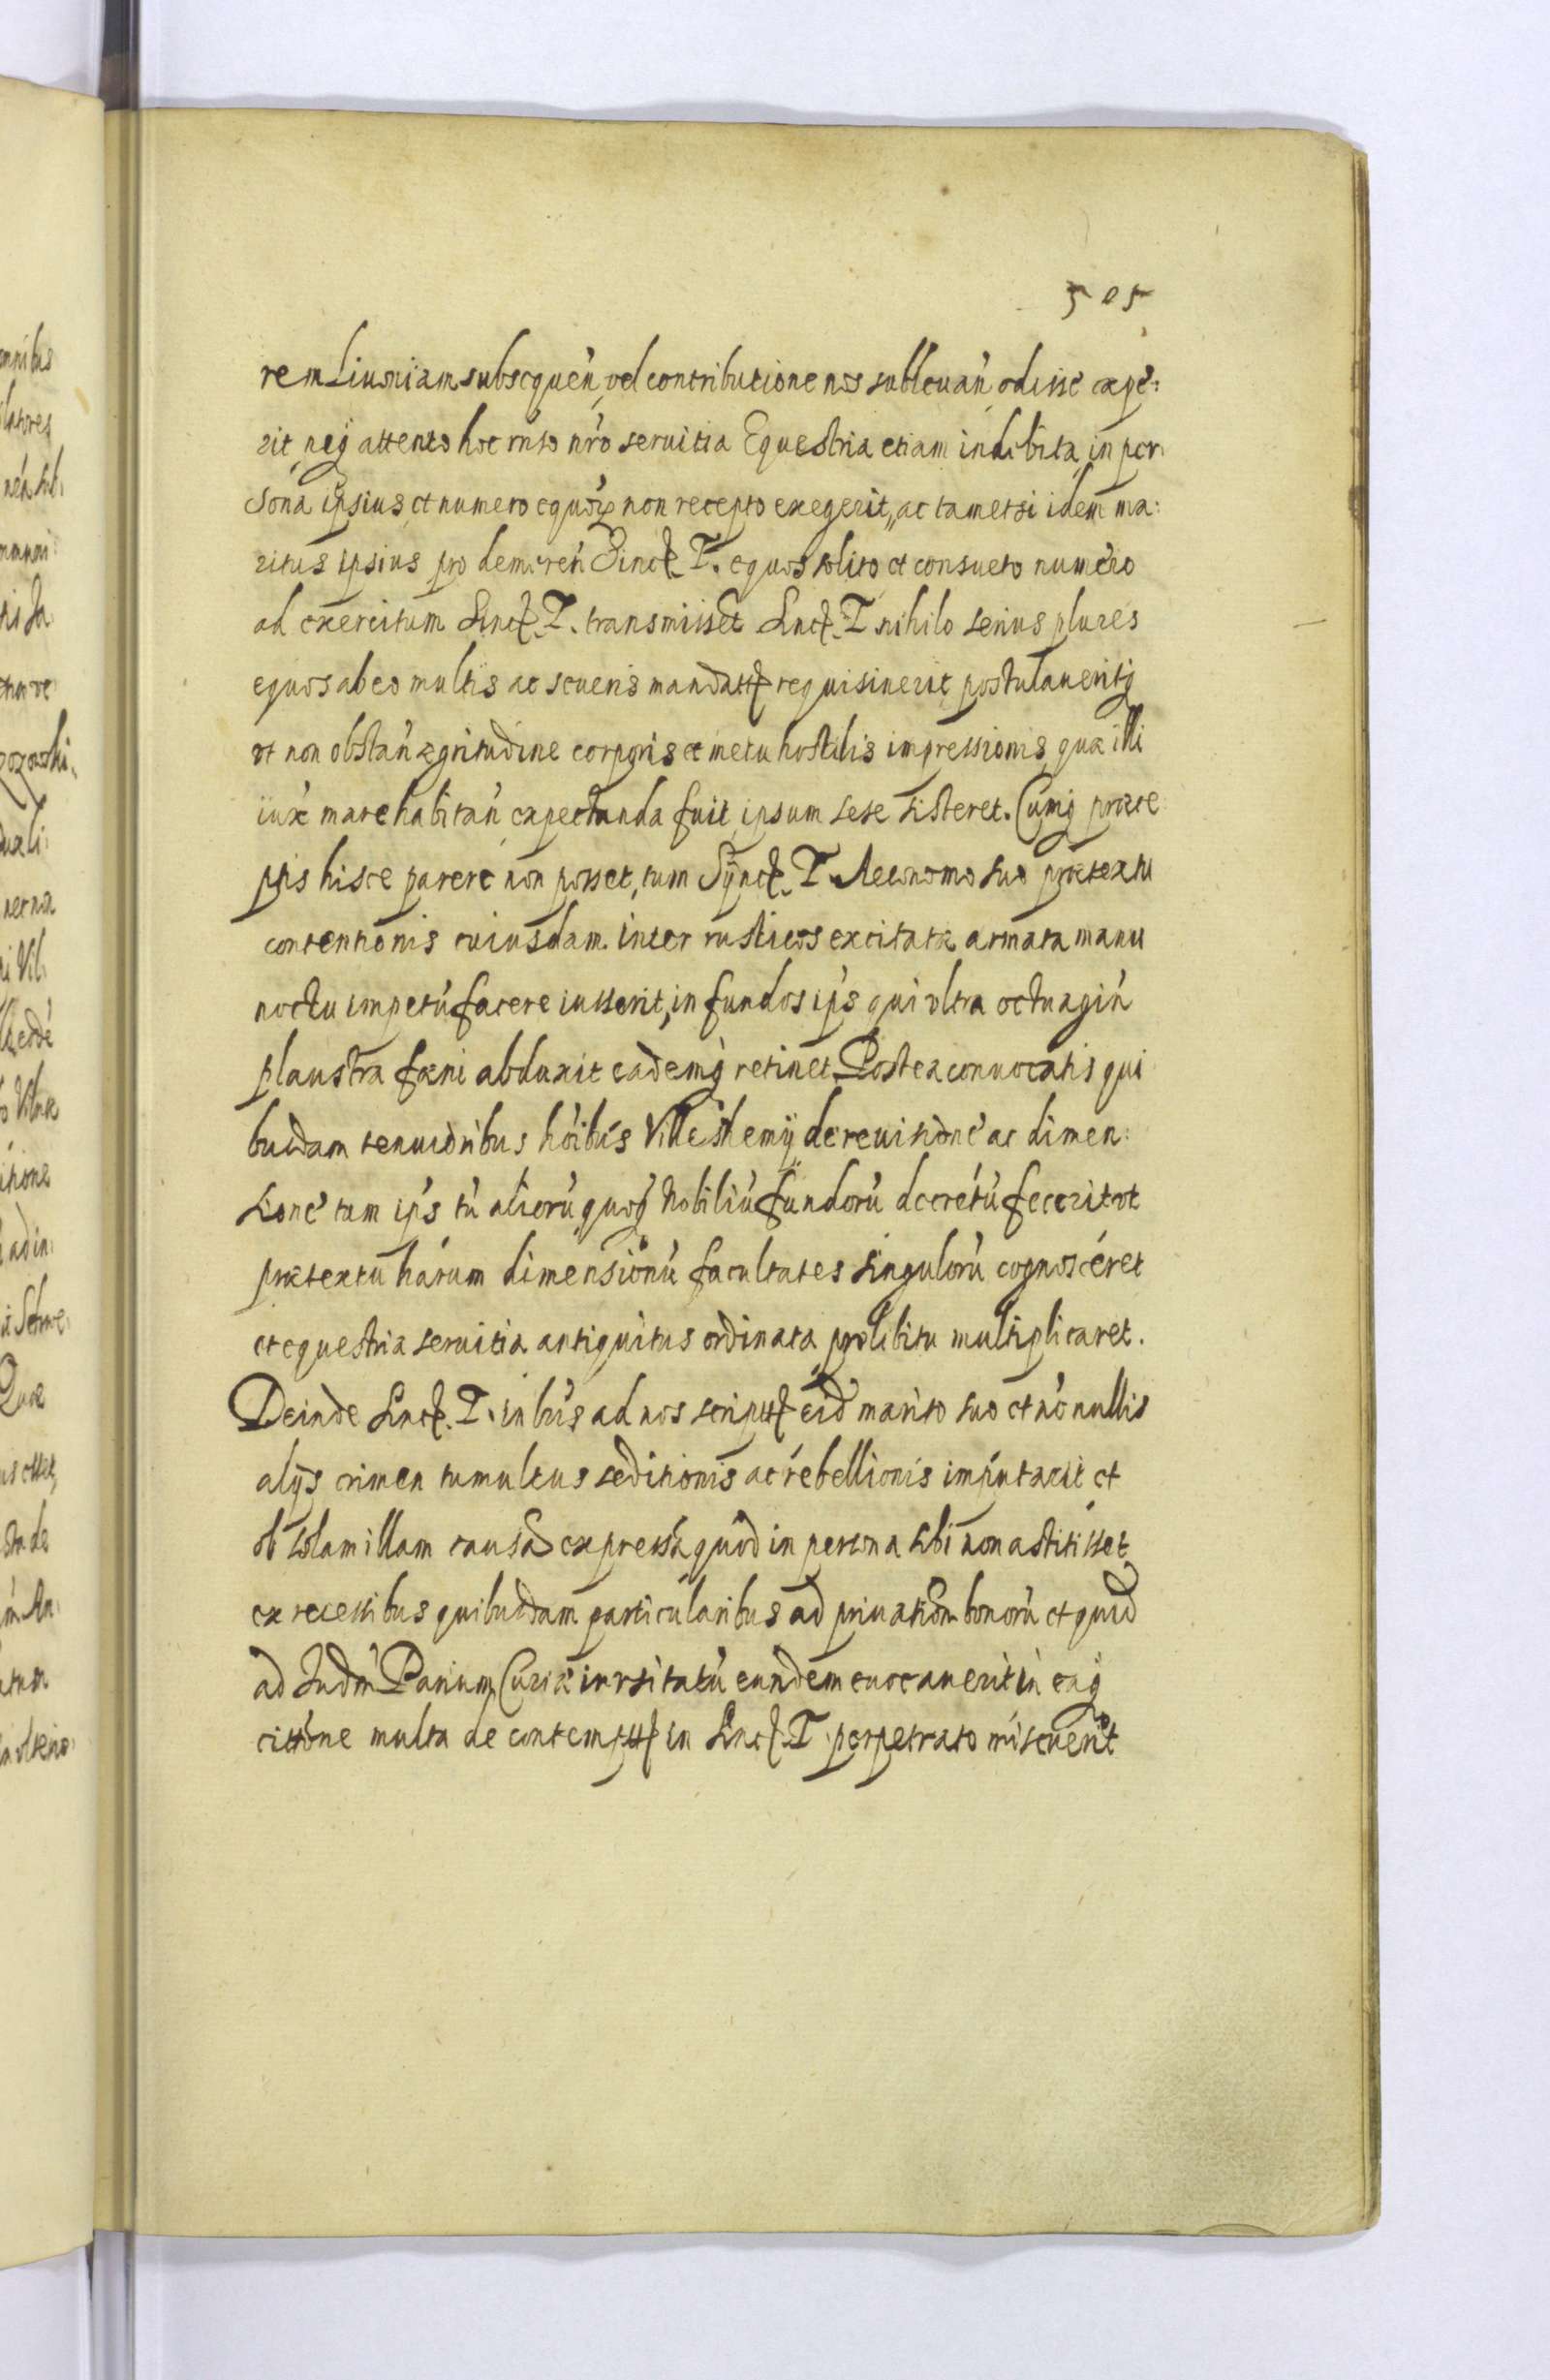 505
rem Liuoniam subsequeń, vel contributione nos subleuań odisse cæpe:
rit, neq́ attento hoc ińto nŕo seruitia Equestria etiam indebita, in per
sona ipsius, et numero equoŕ non recepto exegerit, ac tametsi idem ma:
ritus ipsius pro demereń Sinc. T. equos solito et consueto numero
ad exercitum Sinc. T. transmisset Sinc. T nihilo senius plures
equos ab eo multis ac seueris mandatis requisiuerit, postulaueritq́
vt non obstań ægritudine corporis et metu hostilis impressionis, quæ illi
iux́ mare habitań, expectanda fuit, ipsum sese sisteret. Cumq́ præce
ptis hisce parere non posset, tum Sync. T. Aeconomo suo prætextu
contentionis cuiusdam inter rusticos excitatæ armata manu
noctu impetú facere iusserit, in fundos ips qui vltra octuagiń
plaustra fæni abduxit eademq́ retinet. Postea conuocatis qui
busdam tenuioribus hóibus de reuisione ac dimen:
sione tam ips tú aliorú quoq́ Nobiliú fundorú decretú fecerit vt
prætextu harum dimensionú facultates singulorú cognosceret
et equestria seruitia antiquitus ordinata prolibitu multiplicaret.
Deinde Sinc. T. in lrís ad nos scriptis eid marito suo et nó nullis
alijs crimen tumultus seditionis ac rebellionis imputarit et
ob solam illam causa expressa quod in persona sibi non astitisset
ex recessibus quibusdam particularibus ad priuationem bonorú et quid
ad Judm Parium Curiæ inusitatú eundem euocauerit in eaq́
citióne multa de contemptu in Sinc. T. perpetrato miscuerit